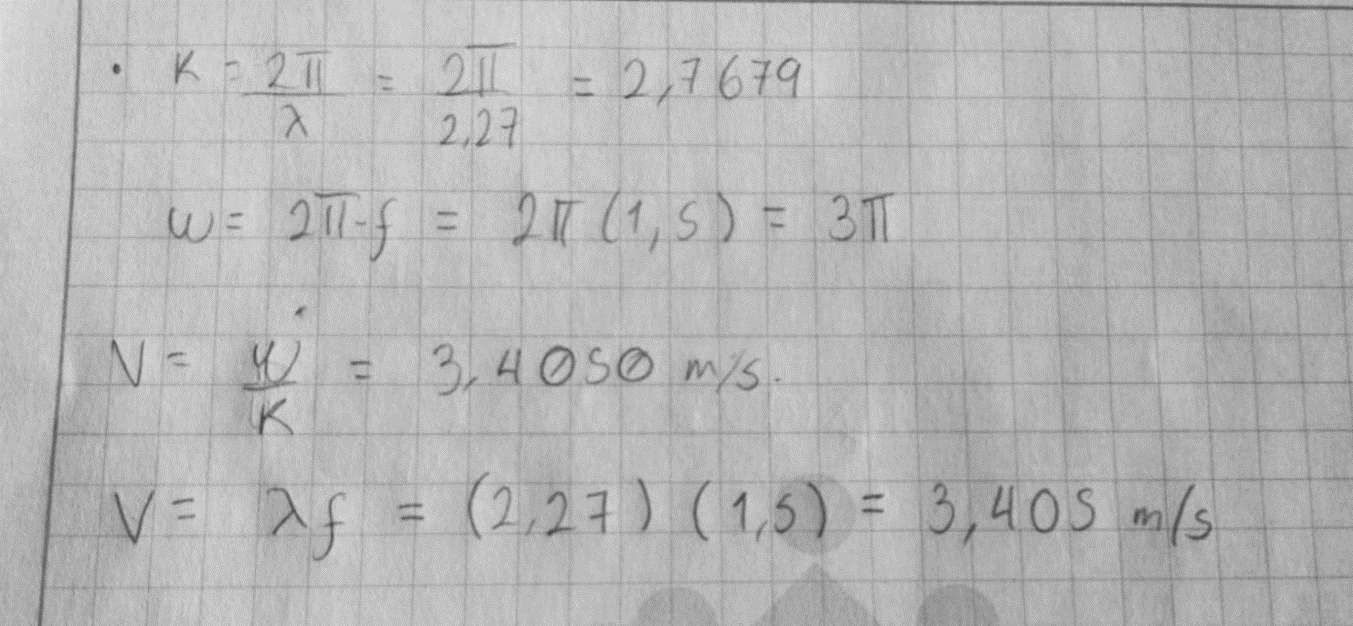 • K = 2π/λ = 2π/2,27 = 2,7679
w = 2π·f = 2π (1,5) = 3π
V = w/K = 3,4050 m/s.
V = λf = (2,27) (1,5) = 3,405 m/s